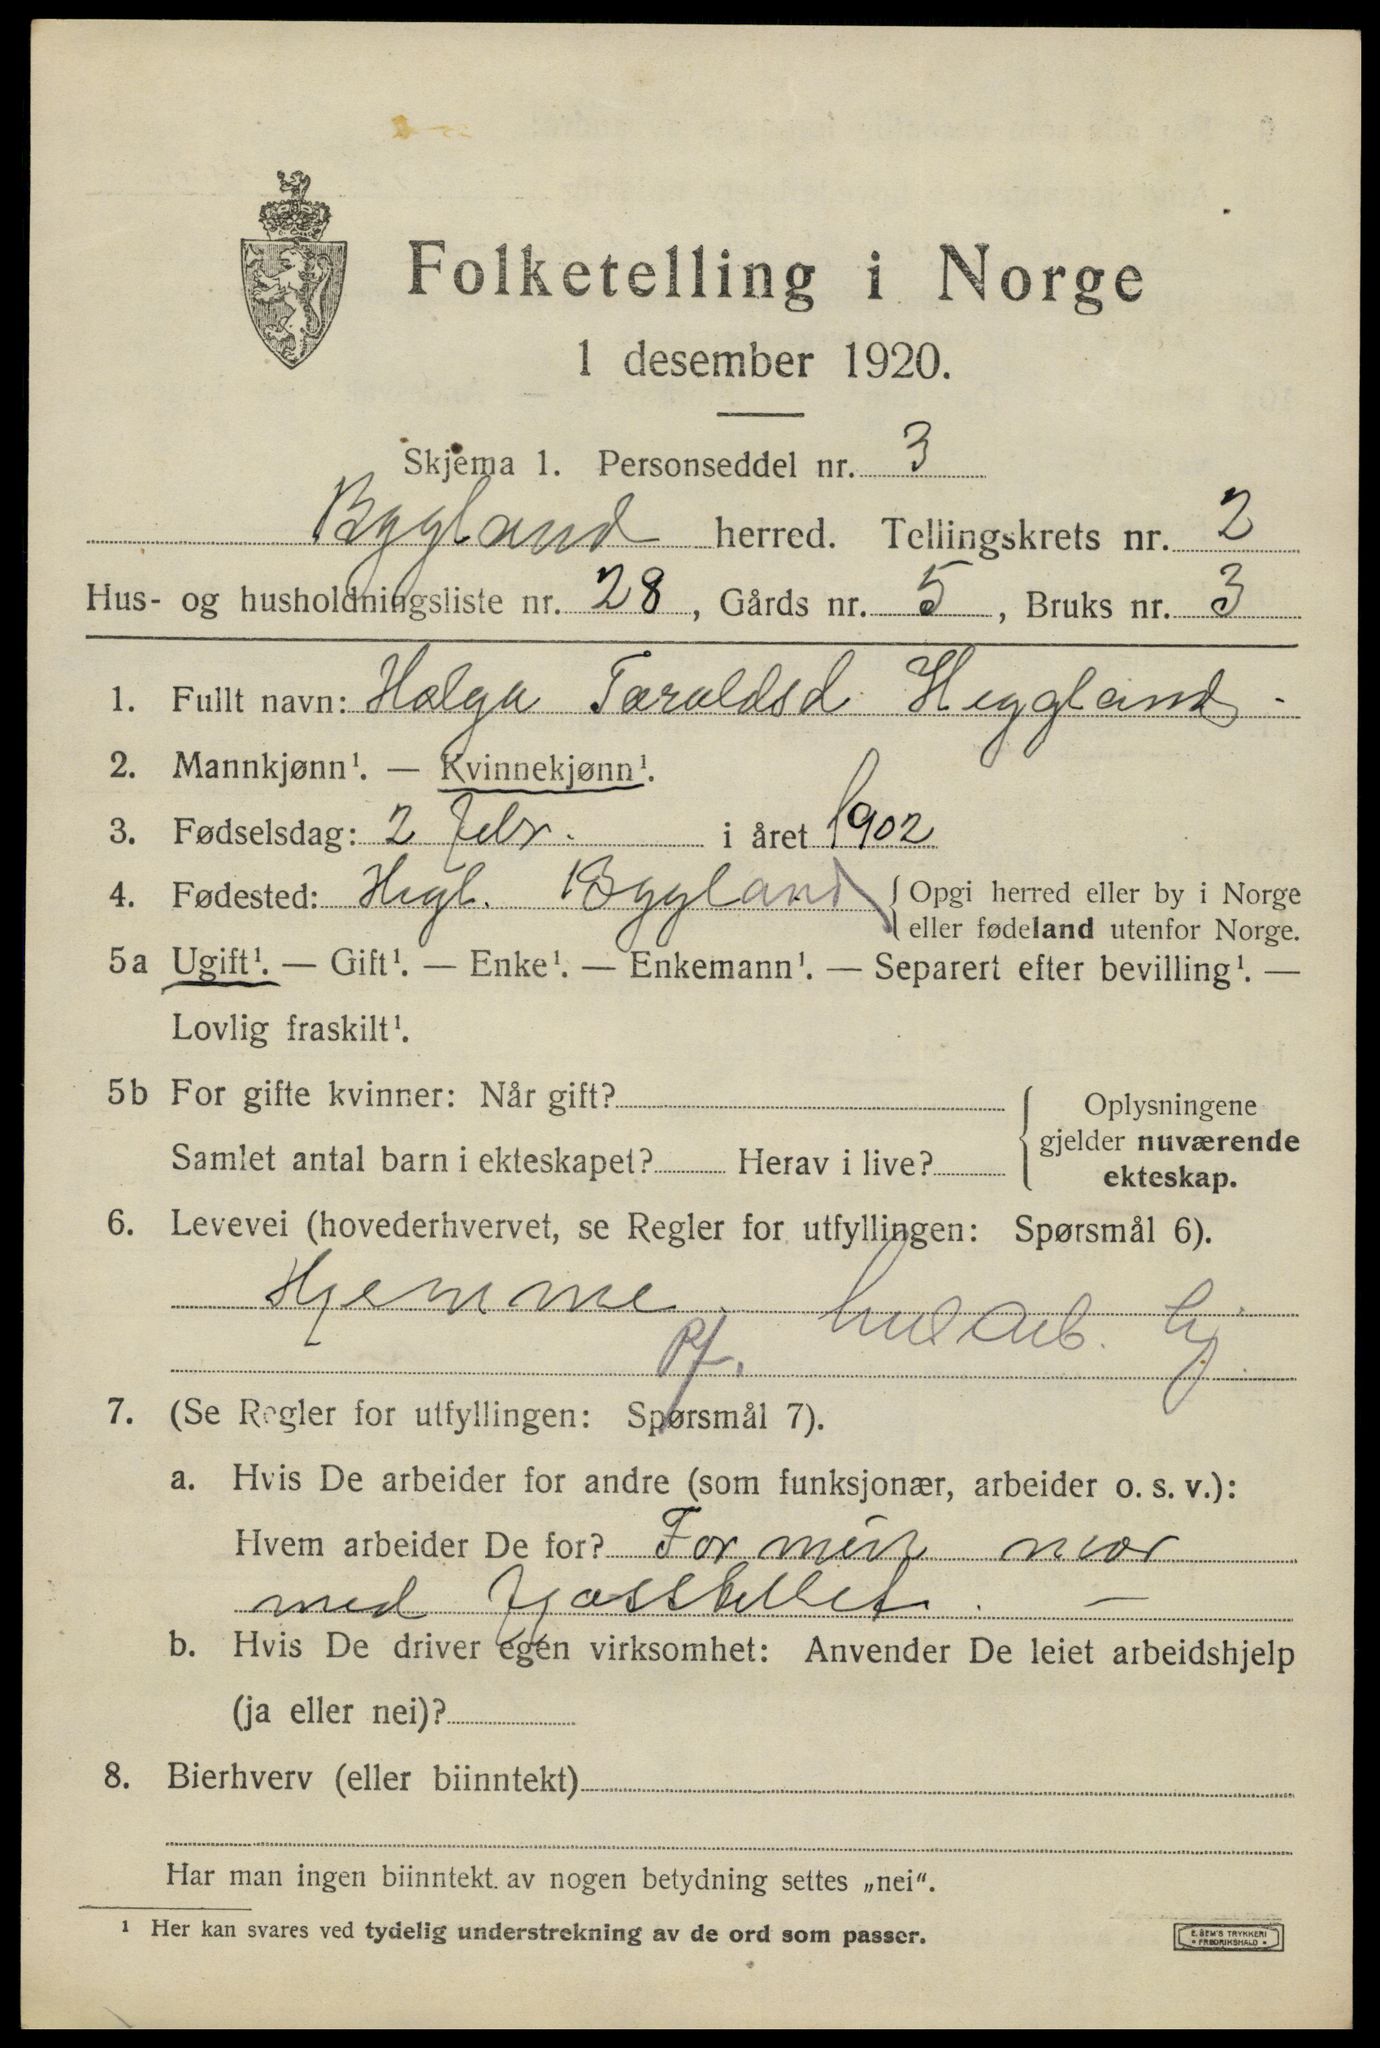 Folketelling i Norge
1 desember 1920.
Skjema 1. Personseddel nr. 3
Bygland herred. Tellingskrets nr. 2
Hus- og husholdningsliste nr. 28, Gårds nr. 5, Bruks nr. 3
1. Fullt navn: Helga Taraldsd Heggland -
2. Mannkjønn¹. — Kvinnekjønn¹.
3. Fødselsdag: 2 febr. i året 1902
4. Fødested: Hegl. Bygland { Opgi herred eller by i Norge
eller fødeland utenfor Norge.
5a Ugift¹. — Gift¹. — Enke¹. — Enkemann¹. — Separert efter bevilling¹. —
Lovlig fraskilt¹.
5b For gifte kvinner: Når gift?
Samlet antal barn i ekteskapet? Herav i live?
{ Oplysningene
gjelder nuværende
ekteskap.
6. Levevei (hovederhvervet, se Regler for utfyllingen: Spørsmål 6).
Hjemme.
7. (Se Regler for utfyllingen: Spørsmål 7).
a. Hvis De arbeider for andre (som funksjonær, arbeider o. s. v.):
Hvem arbeider De for? For min mor
med fjosstellet. —
b. Hvis De driver egen virksomhet: Anvender De leiet arbeidshjelp
(ja eller nei)?
8. Bierhverv (eller biinntekt)
Har man ingen biinntekt av nogen betydning settes „nei“.
¹ Her kan svares ved tydelig understrekning av de ord som passer.
E. SEM'S TRYKKERI
• FREDRIKSHALD •